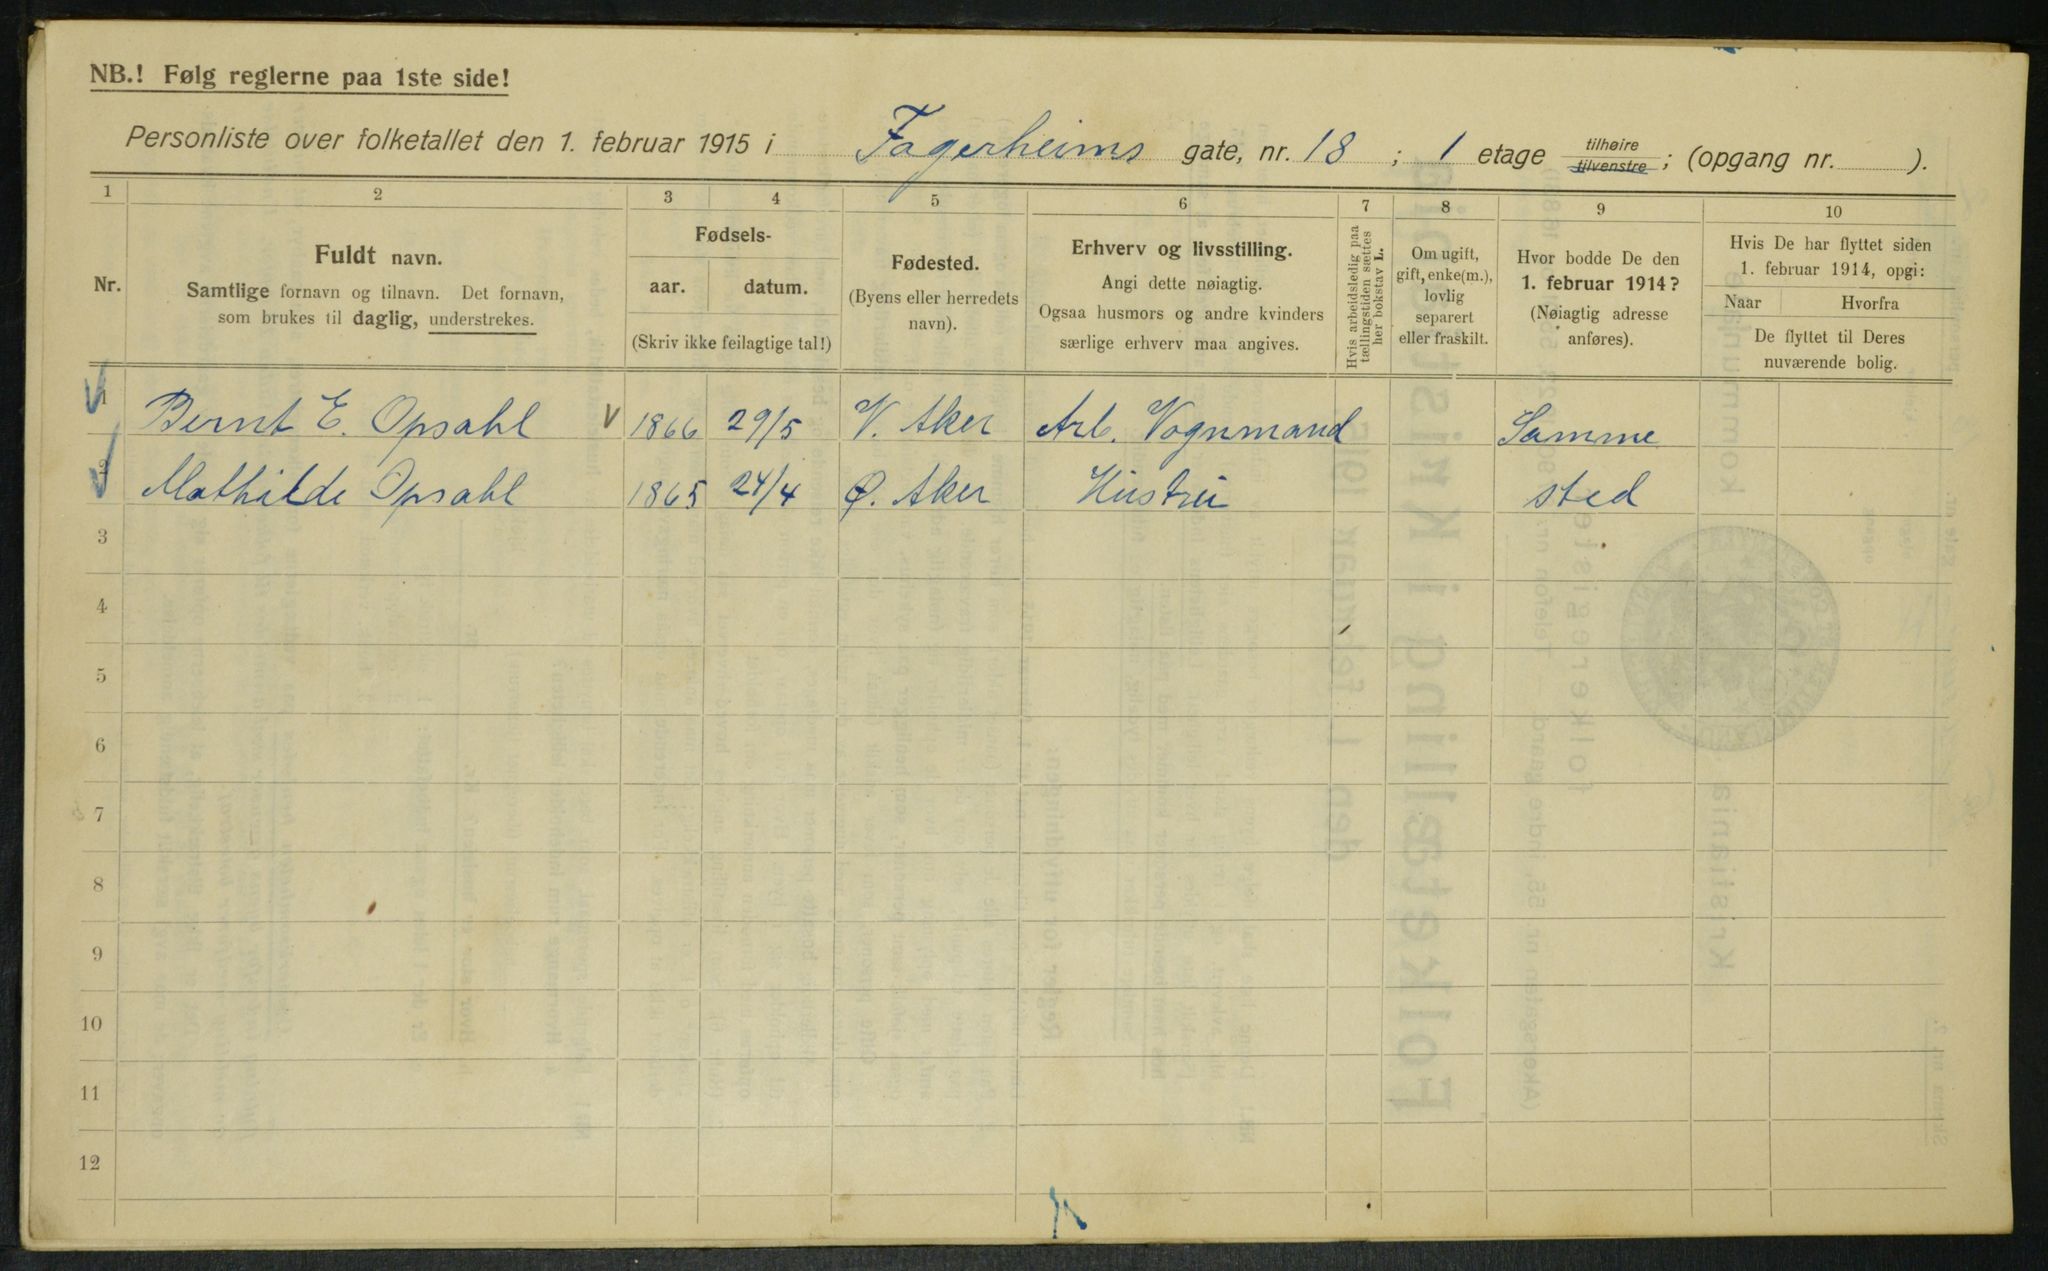 NB.! Følg reglerne paa 1ste side!
Personliste over folketallet den 1. februar 1915 i Fagerheims gate, nr. 18 ; 1 etage tilhøire tilvenstre ; (opgang nr. ).
1 2 3 4 5 6 7 8 9 10
Nr.
Fuldt navn.
Samtlige fornavn og tilnavn. Det fornavn,
som brukes til daglig, understrekes.
Fødsels-
aar. datum.
(Skriv ikke feilagtige tal!)
Fødested.
(Byens eller herredets
navn).
Erhverv og livsstilling.
Angi dette nøiagtig.
Ogsaa husmors og andre kvinders
særlige erhverv maa angives.
Hvis arbeidsledig paa
tællingstiden sættes
her bokstav L.
Om ugift,
gift, enke(m.),
lovlig
separert
eller fraskilt.
Hvor bodde De den
1. februar 1914?
(Nøiagtig adresse
anføres).
Hvis De har flyttet siden
1. februar 1914, opgi:
Naar Hvorfra
De flyttet til Deres
nuværende bolig.
1 Bernt E. Opsahl 1866 29/5 V. Aker Arb. Vognmand Samme
2 Mathilde Opsahl 1865 24/4 Ø. Aker Hustru sted
3
4
5
6
7
8
9
10
11
12